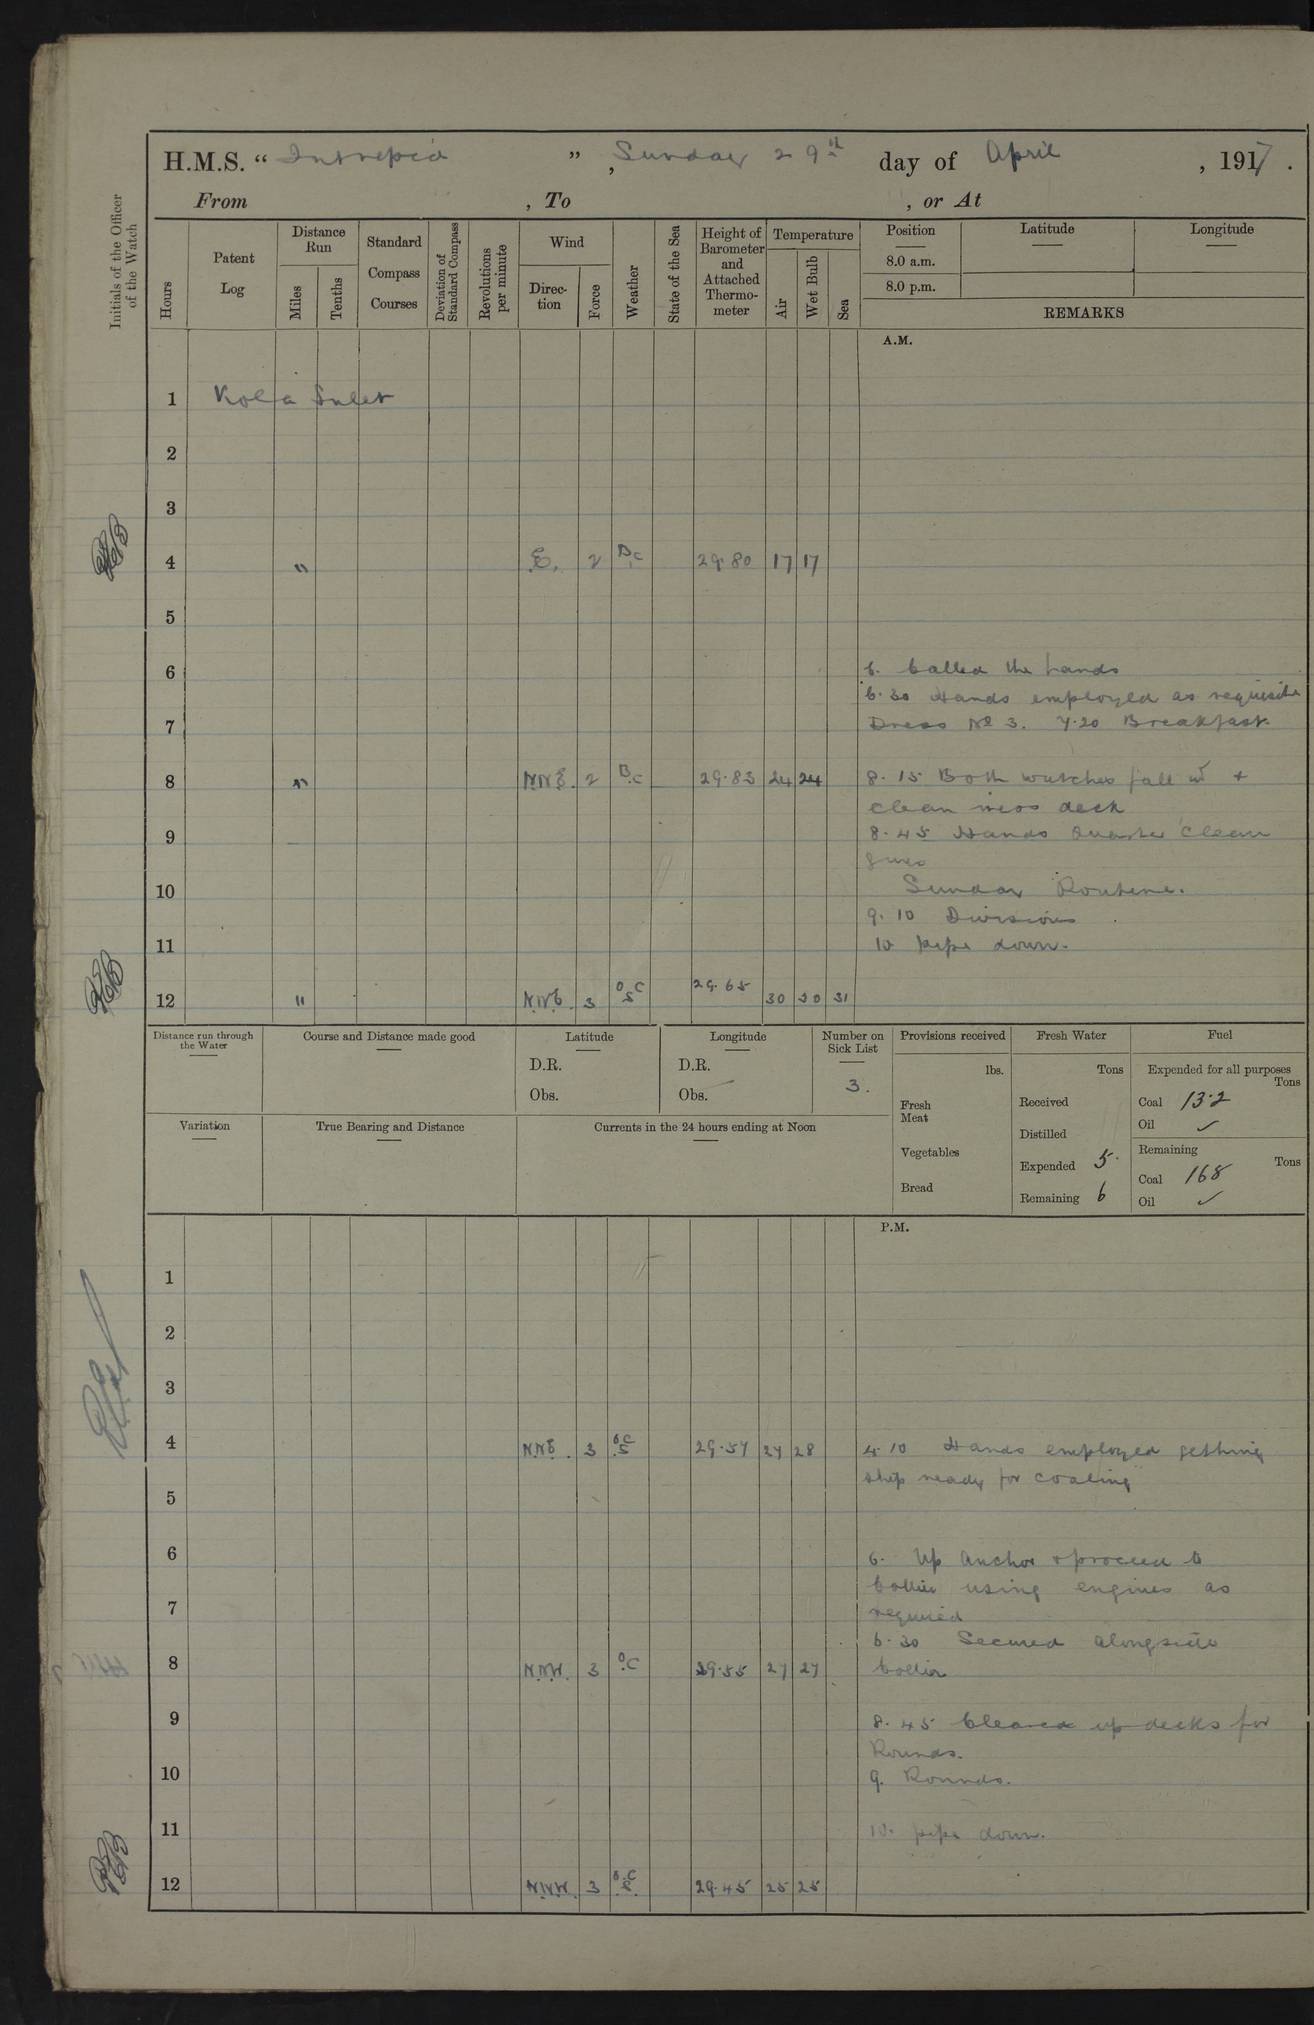 H.M.S. “ Intrepid ” , Sunday 29th day of April , 1917 .
From , To , or At
Initials of the Officer of the Watch
Hours
Patent Log
Distance Run
Miles
Tenths
Standard Compass Courses
Deviation of Standard Compass
Revolutions per minute
Wind
Direction
Force
Weather
State of the Sea
Height of Barometer and Attached Thermometer
Temperature
Air
Wet Bulb
Sea
Position
8.0 a.m.
8.0 p.m.
Latitude
Longitude
REMARKS
A.M.
1 Kola Inlet
2
3
4 " E. 2 Bc 29.80 17 17
5
6 6. Called the hands
6.30 Hands employed as requisite
7 Dress No 3. 7.20 Breakfast.
8 " N.N.E. 2 B.c 29.83 24 24 8.15 Both watches fall in +
clean mess deck
9 8.45 Hands Quarters clean
guns
10 Sunday Routine.
9.10 Divisions
11 10 pipe down.
12 " N.N.E. 3 O C S 29.65 30 30 31
Distance run through the Water
Course and Distance made good
Latitude
D.R.
Obs.
Longitude
D.R.
Obs.
Number on Sick List
3.
Provisions received
lbs.
Fresh Meat
Vegetables
Bread
Fresh Water
Tons
Received
Distilled
Expended 5.
Remaining 6
Fuel
Expended for all purposes
Tons
Coal 13.2
Oil ✓
Remaining
Tons
Coal 168
Oil ✓
Variation
True Bearing and Distance
Currents in the 24 hours ending at Noon
P.M.
1
2
3
4 N.N.E. 3 O C S 29.57 27 28 4.10 Hands employed getting
ship ready for coaling
5
6 6. Up anchor + proceed to
Collier using engines as
7 required
6.30 Secured alongside
8 N.N.W. 3 O.C 29.55 27 27 Collier
9 8.45 Cleared up decks for
Rounds.
10 9. Rounds.
11 10. pipe down.
12 N.N.W. 3 O.C S. 29.45 25 25